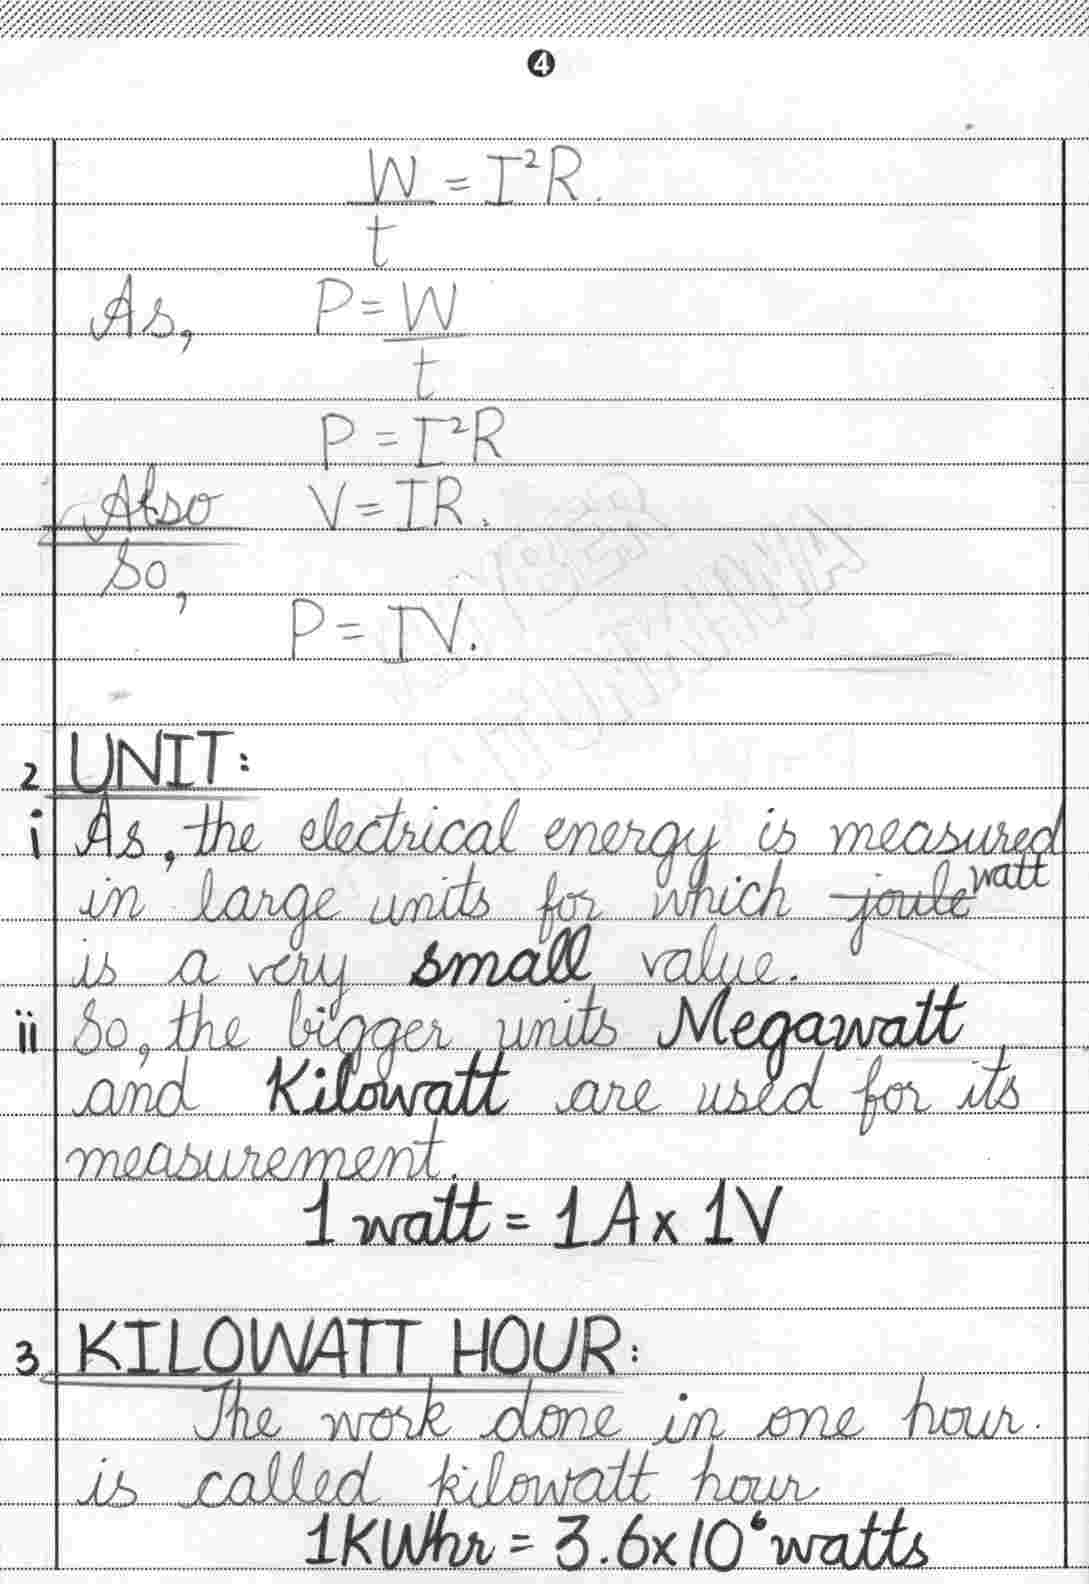 4
W/t = I²R.
As, P = W/t
P = I²R
Also V = IR.
So,
P = IV.
2 UNIT:
i As, the electrical energy is measured
in large units for which joule watt
is a very small value.
ii So, the bigger units Megawatt
and Kilowatt are used for its
measurement.
1 watt = 1A x 1V
3 KILOWATT HOUR:
The work done in one hour.
is called kilowatt hour
1KWhr = 3.6x10⁶ watts